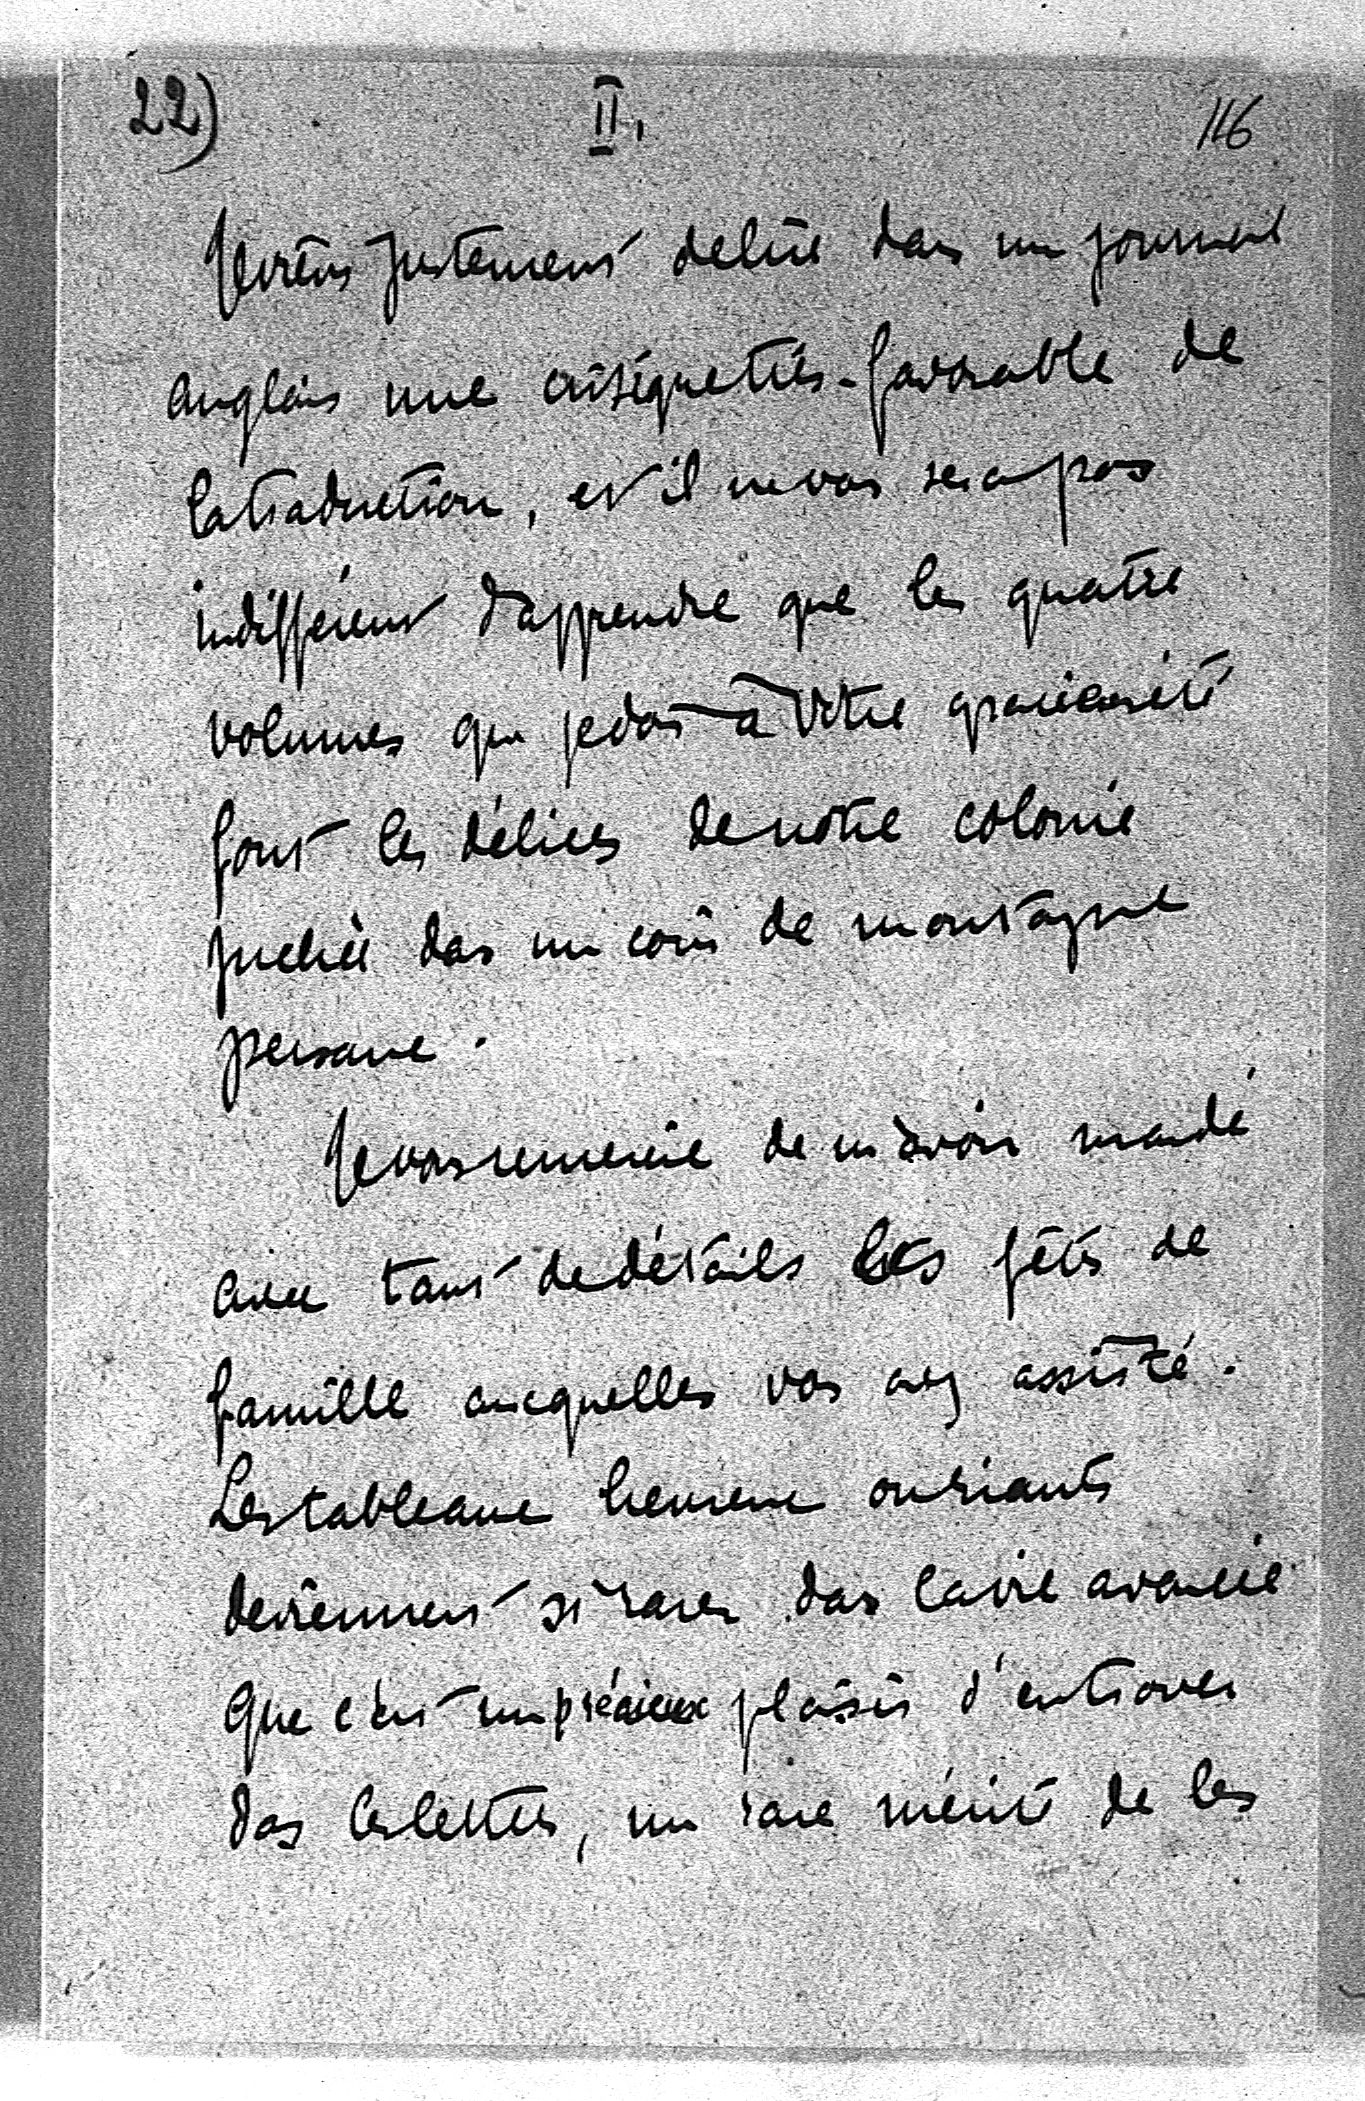 22) II. 116
Je viens justement de lire dans un journal
anglais une critique très-favorable de
la traduction, et il ne vous sera pas
indifférent d'apprendre que les quatre
volumes que je dois à Votre gracieuseté
font les délices de notre colonie
juchée dans un coin de montagne
persane.
Je vous remercie de m'avoir mandé
avec tant de détails les fêtes de
famille auxquelles vous avez assisté.
Les tableaux heureux ou riants
deviennent si rares dans la vie avancée
que c'est un précieux plaisir d'en trouver
dans les lettres, un rare mérite de les